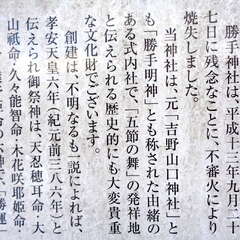 勝手神社は、平成十三年九月二十
七日に残念なことに、不審火により
焼失しました。
当神社は、元「吉野山口神社」と
も「勝手明神」とも称された由緒の
ある式内社で、「五節の舞」の発祥地
と伝えられる歴史的にも大変貴重
な文化財でございます。
創建は、不明なるも一説によれば、
孝安天皇六年（紀元前三八六年）と
伝えられ御祭神は、天忍穂耳命・大
山祇命・久々能智命・木花咲耶姫命・
の六神で「勝運」